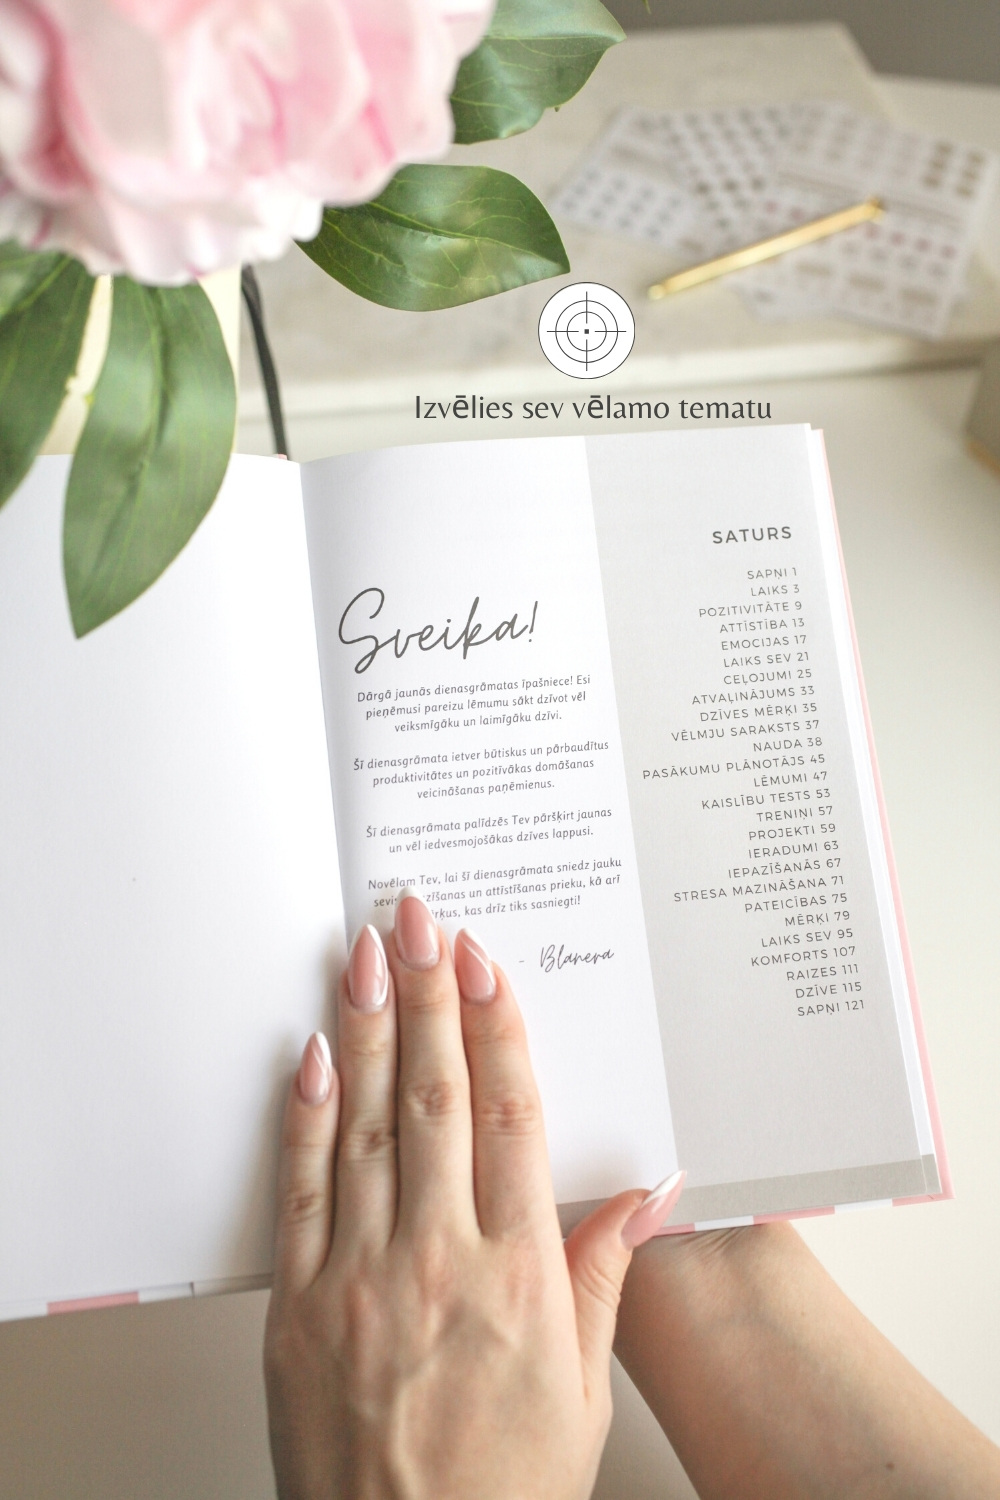 Izvēlies sev vēlamo tematu
Sveika!
Dārgā jaunās dienasgrāmatas īpašniece! Esi
pieņēmusi pareizu lēmumu sākt dzīvot vēl
veiksmīgāku un laimīgāku dzīvi.
Šī dienasgrāmata ietver būtiskus un pārbaudītus
produktivitātes un pozitīvākas domāšanas
veicināšanas paņēmienus.
Šī dienasgrāmata palīdzēs Tev pāršķirt jaunas
un vēl iedvesmojošākas dzīves lappusi.
Novēlam Tev, lai šī dienasgrāmata sniedz jauku
un attīstīšanas prieku, kā arī
kas drīz tiks sasniegti!
- Blanera
SATURS
SAPŅI 1
LAIKS 3
POZITIVITĀTE 9
ATTĪSTĪBA 13
EMOCIJAS 17
LAIKS SEV 21
CEĻOJUMI 25
ATVAĻINĀJUMS 33
DZĪVES MĒRĶI 35
VĒLMJU SARAKSTS 37
NAUDA 38
PASĀKUMU PLĀNOTĀJS 45
LĒMUMI 47
KAISLĪBU TESTS 53
TRENIŅI 57
PROJEKTI 59
IERADUMI 63
IEPAZĪŠANĀS 67
STRESA MAZINĀŠANA 71
PATEICĪBAS 75
MĒRĶI 79
LAIKS SEV 95
KOMFORTS 107
RAIZES 111
DZĪVE 115
SAPŅI 121